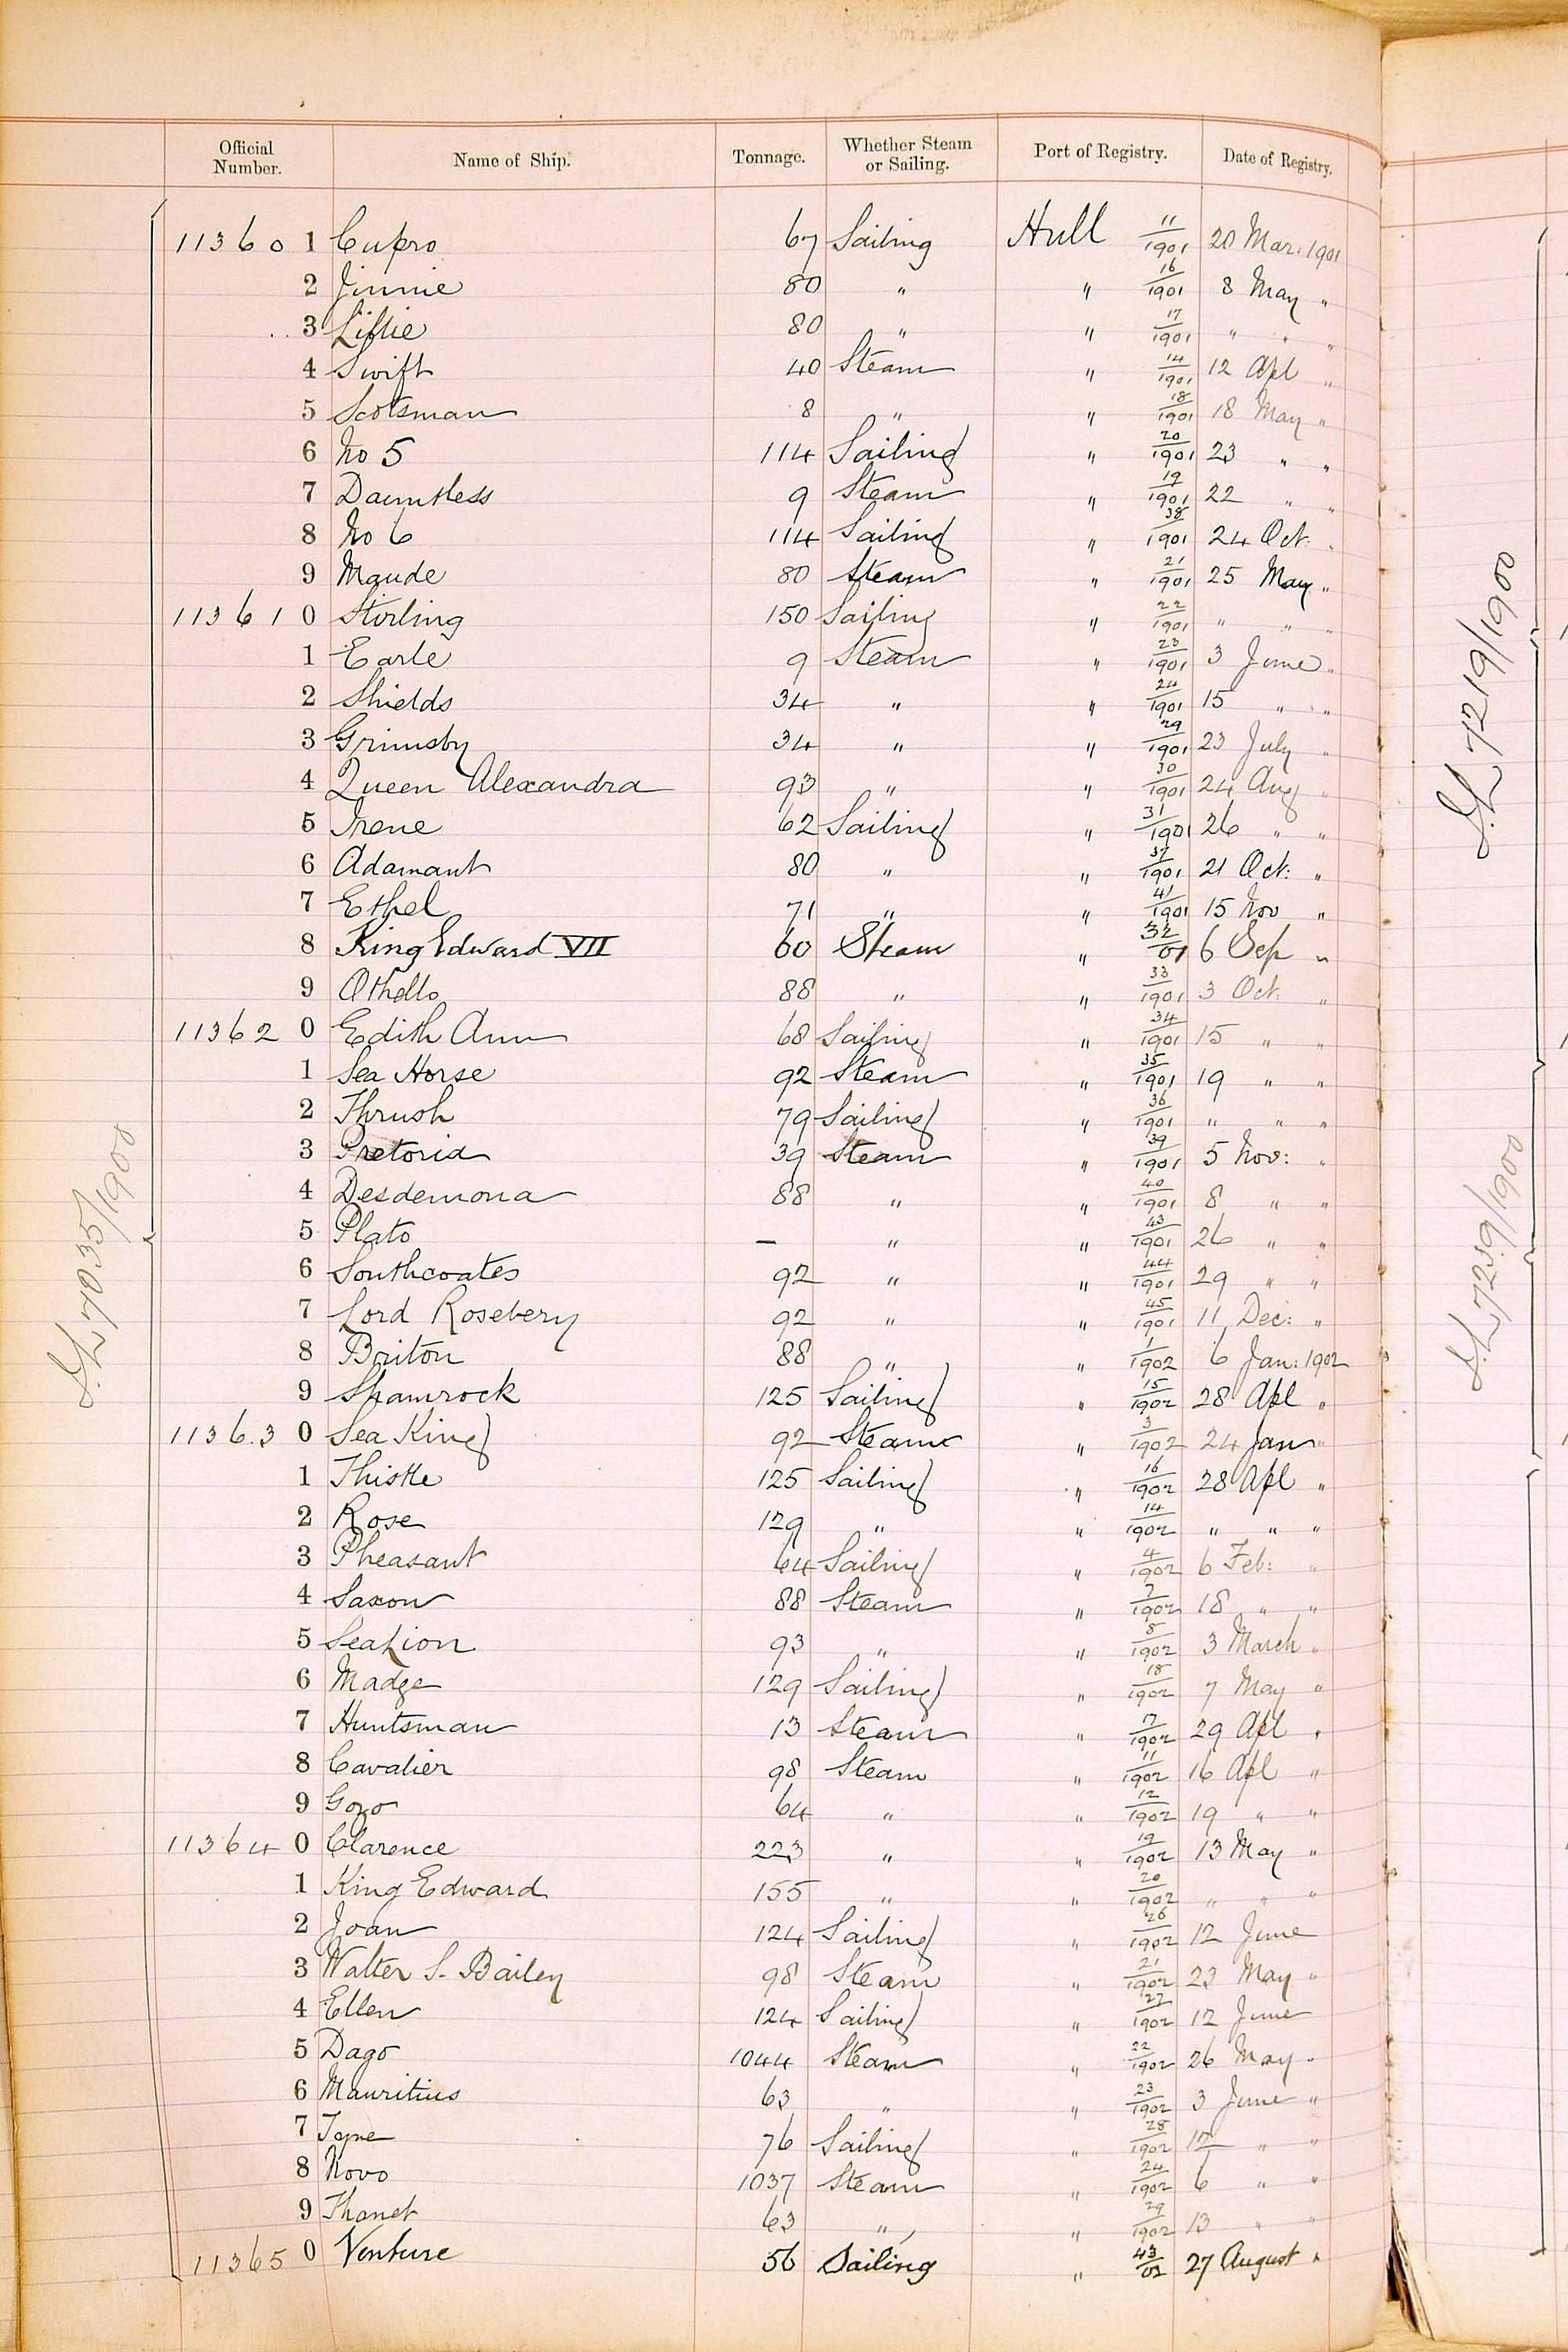 Official Number. Name of Ship. Tonnage. Whether Steam or Sailing. Port of Registry. Date of Registry.
11360 1 Cupro 67 Sailing Hull 11/1901 20 Mar: 1901
2 Jinnie 80 " " 16/1901 8 May "
3 Liftie 80 " " 17/1901 " " "
4 Swift 40 Steam " 14/1901 12 Apl "
5 Scotsman 8 " " 18/1901 18 May "
6 No 5 114 Sailing " 20/1901 23 " "
7 Dauntless 9 Steam " 19/1901 22 " "
8 No 6 114 Sailing " 38/1901 24 Oct: "
9 Maude 80 Steam " 21/1901 25 May "
11361 0 Stirling 150 Sailing " 22/1901 " " "
1 Earle 9 Steam " 23/1901 3 June "
2 Shields 34 " " 24/1901 15 " "
3 Grimsby 34 " " 29/1901 23 July "
4 Queen Alexandra 93 " " 30/1901 24 Aug "
5 Irene 62 Sailing " 31/1901 26 " "
6 Adamant 80 " " 37/1901 21 Oct: "
7 Ethel 71 " " 41/1901 15 Nov "
8 King Edward VII 60 Steam " 32/01 6 Sep "
9 Othello 88 " " 33/1901 3 Oct: "
11362 0 Edith Ann 68 Sailing " 34/1901 15 " "
1 Sea Horse 92 Steam " 35/1901 19 " "
2 Thrush 79 Sailing " 36/1901 " " "
3 Pretoria 39 Steam " 39/1901 5 Nov: "
4 Desdemona 88 " " 40/1901 8 " "
5 Plato — " " 43/1901 26 " "
6 Southcoates 92 " " 44/1901 29 " "
7 Lord Rosebery 92 " " 45/1901 11 Dec: "
8 Briton 88 " " 1/1902 6 Jan: 1902
9 Shamrock 125 Sailing " 15/1902 28 Apl "
11363 0 Sea King 92 Steam " 3/1902 24 Jan "
1 Thistle 125 Sailing " 16/1902 28 Apl "
2 Rose 129 " " 14/1902 " " "
3 Pheasant 64 Sailing " 4/1902 6 Feb: "
4 Saxon 88 Steam " 7/1902 18 " "
5 Sea Lion 93 " " 8/1902 3 March "
6 Madge 129 Sailing " 18/1902 7 May "
7 Huntsman 13 Steam " 17/1902 29 Apl "
8 Cavalier 98 Steam " 11/1902 16 Apl "
9 Gozo 64 " " 12/1902 19 " "
11364 0 Clarence 223 " " 19/1902 13 May "
1 King Edward 155 " " 20/1902 " " "
2 Joan 124 Sailing " 26/1902 12 June
3 Walter S. Bailey 98 Steam " 21/1902 23 May "
4 Ellen 124 Sailing " 27/1902 12 June
5 Dago 1044 Steam " 22/1902 26 May "
6 Mauritius 63 " " 23/1902 3 June "
7 Tyne 76 Sailing " 28/1902 " "
8 Novo 1037 Steam " 24/1902 6 " "
9 Thanet 63 " " 29/1902 13 " "
11365 0 Venture 56 Sailing " 43/02 27 August "
7035/1900
7219/1900
7239/1900